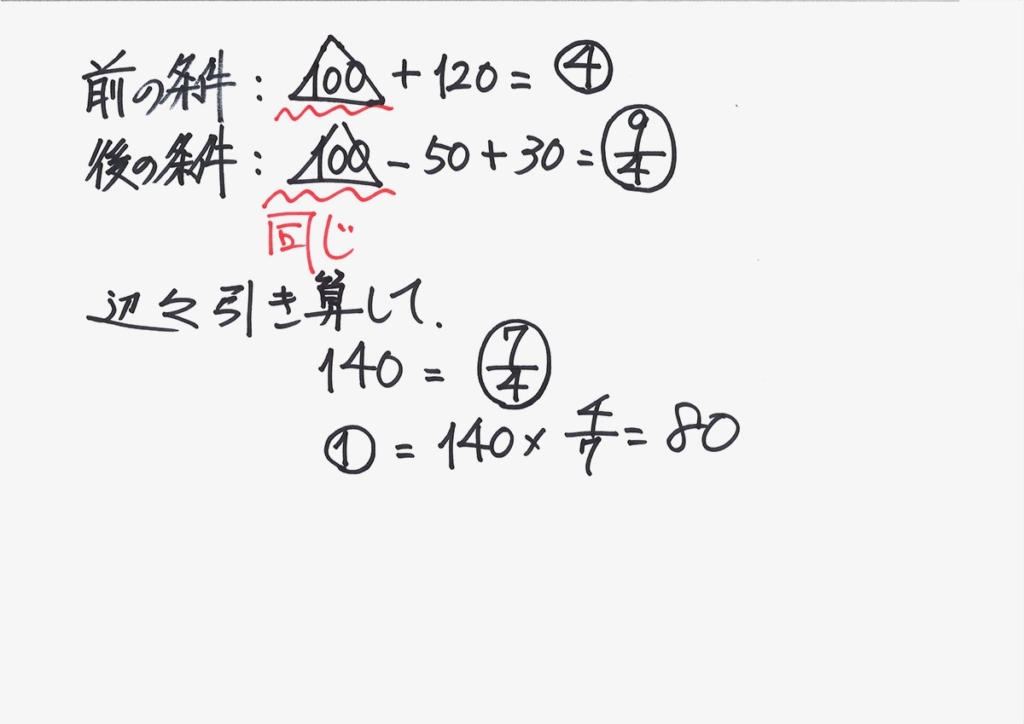 前の条件: △100 + 120 = ④
後の条件: △100 - 50 + 30 = ○9/4
同じ
辺々引き算して.
140 = ○7/4
① = 140 × 4/7 = 80